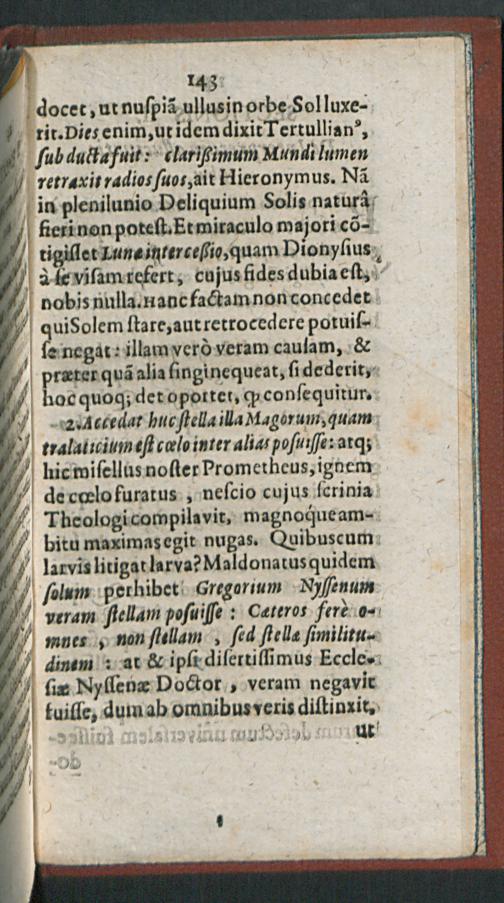 143
docet, ut nuſpiã ullus in orbe Sol luxe-
rit. Dies enim, ut idem dixit Tertullianꝰ,
ſubducta fuit: clarißimum Mundi lumen
retraxit radios ſuos, ait Hieronymus. Nã
in plenilunio Deliquium Solis naturâ
fieri non poteſt. Et miraculo majori cõ-
tigiſſet Lunæ interceßio, quam Dionyſius
à ſe viſam refert, cujus fides dubia eſt,
nobis nulla. Hanc factam non concedet
qui Solem ſtare, aut retrocedere potuiſ-
ſe negat: illam verò veram cauſam, &
præter quã alia fingi nequeat, ſi dederit,
hoc quoq; det oportet, ꝙ conſequitur.
2. Accedat huc ſtella illa Magorum, quam
tralaticium eſt cœlo inter alias poſuiſſe: atq;
hic miſellus noſter Prometheus, ignem
de cœlo furatus, neſcio cujus ſcrinia
Theologi compilavit, magnoque am-
bitu maximas egit nugas. Quibuscum
larvis litigat larva? Maldonatus quidem
ſolum perhibet Gregorium Nyſſenum
veram ſtellam poſuiſſe: Cæteros ferè o-
mnes, non ſtellam, ſed ſtellæ ſimilitu-
dinem: at & ipſe diſertiſſimus Eccle-
ſiæ Nyſſenæ Doctor, veram negavit
fuiſſe, dum ab omnibus veris diſtinxit,
ut